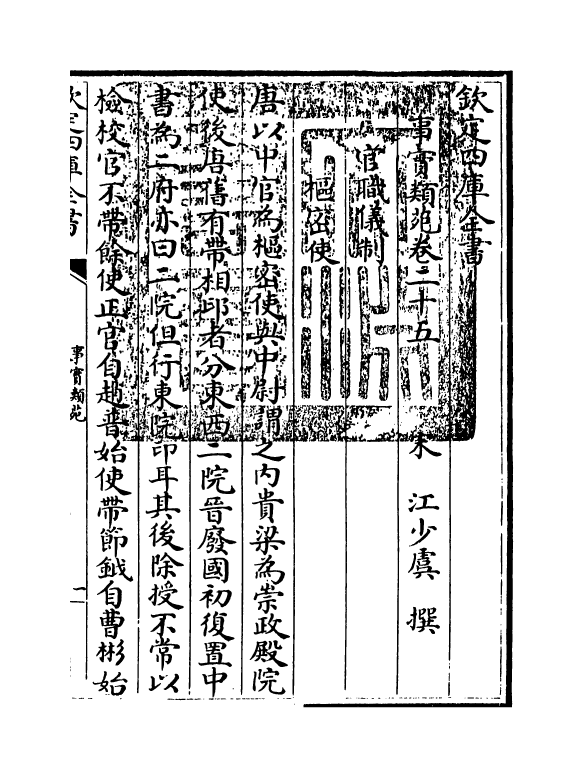 欽定四庫全書
事實類苑卷二十五
宋 江少虞 撰
官職儀制
樞密使
唐以中官為樞密使與中尉謂之內貴梁為崇政殿院
使後唐舊有帶相印者分東西二院晉廢國初復置中
書為二府亦曰二院但行東院印耳其後除授不常以
檢校官不帶餘使正官自趙普始使帶節鉞自曹彬始
欽定四庫全書
事實類苑
一